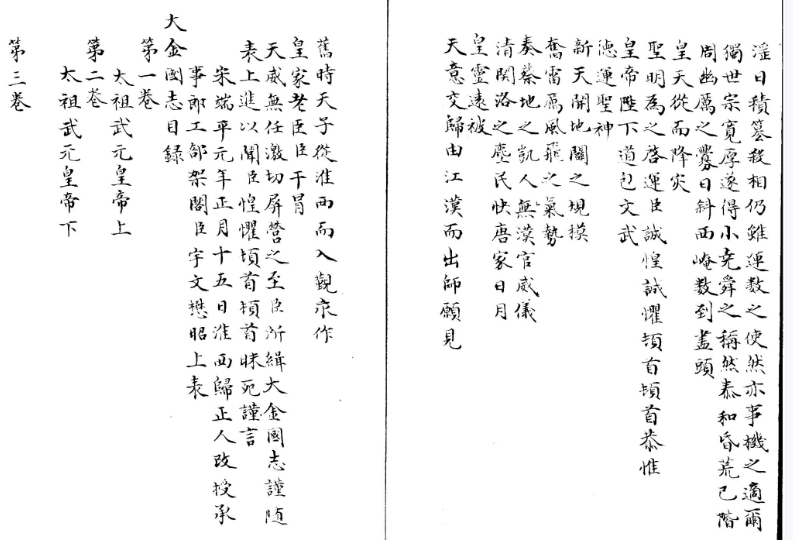 淫日積簒殺相仍雖運數之使然亦事機之適爾
獨世宗寛厚遂得小堯舜之稱然泰和昏荒已階
周幽厲之釁日斜西崦数到盡頭
皇天從而降灾
聖明為之啓運臣誠惶誠懼頓首頓首恭惟
皇帝陛下道包文武
徳運聖神
新天開地闢之規模
奮雷厲風飛之氣勢
奏蔡地之凱人無漢官威儀
清関洛之塵民快唐家日月
皇靈遠被
天意交歸由江漢而出師願見
舊時天子從淮西而入觀永作
皇家老臣臣干冒
天威無任激切屏營之至臣所緝大金國志謹随
表上進以聞臣惶懼頓首頓首昧死謹言
宋端平元年正月十五日淮西歸正人改授承
事郎工部架閣臣宇文懋昭上表
大金國志目録
第一巻
太祖武元皇帝上
第二巻
太祖武元皇帝下
第三巻